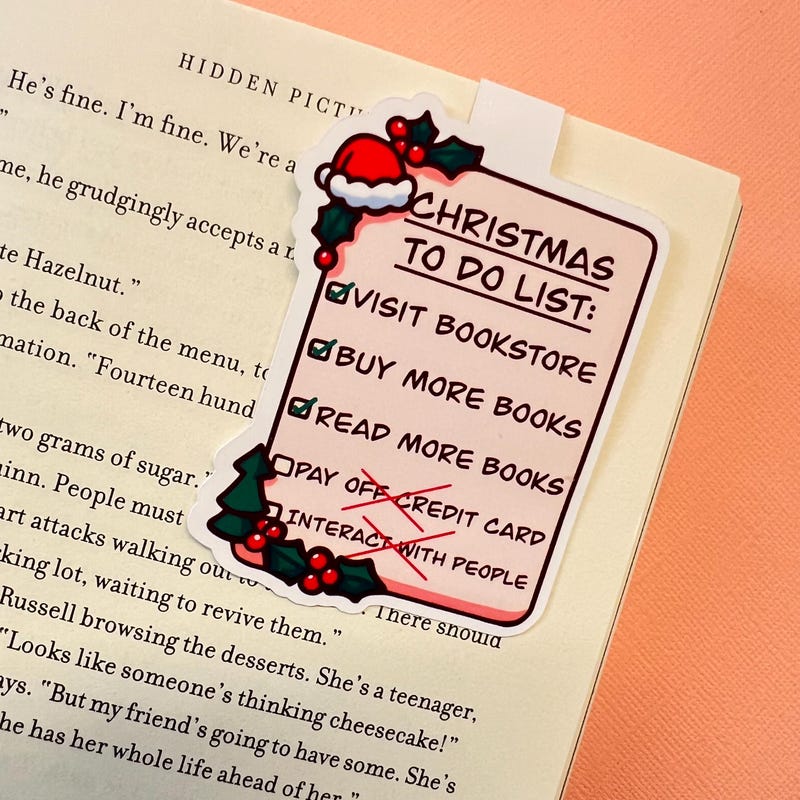 HIDDEN PICTU
He's fine. I'm fine. We're a
"
me, he grudgingly accepts a
te Hazelnut."
the back of the menu, to
mation. "Fourteen hund
two grams of sugar."
inn. People must
art attacks walking out to
king lot, waiting to revive them." There should
Russell browsing the desserts. She's a teenager,
"Looks like someone's thinking cheesecake!"
ays. "But my friend's going to have some. She's
he has her whole life ahead of her."
CHRISTMAS
TO DO LIST:
VISIT BOOKSTORE
BUY MORE BOOKS
READ MORE BOOKS
PAY OFF CREDIT CARD
INTERACT WITH PEOPLE